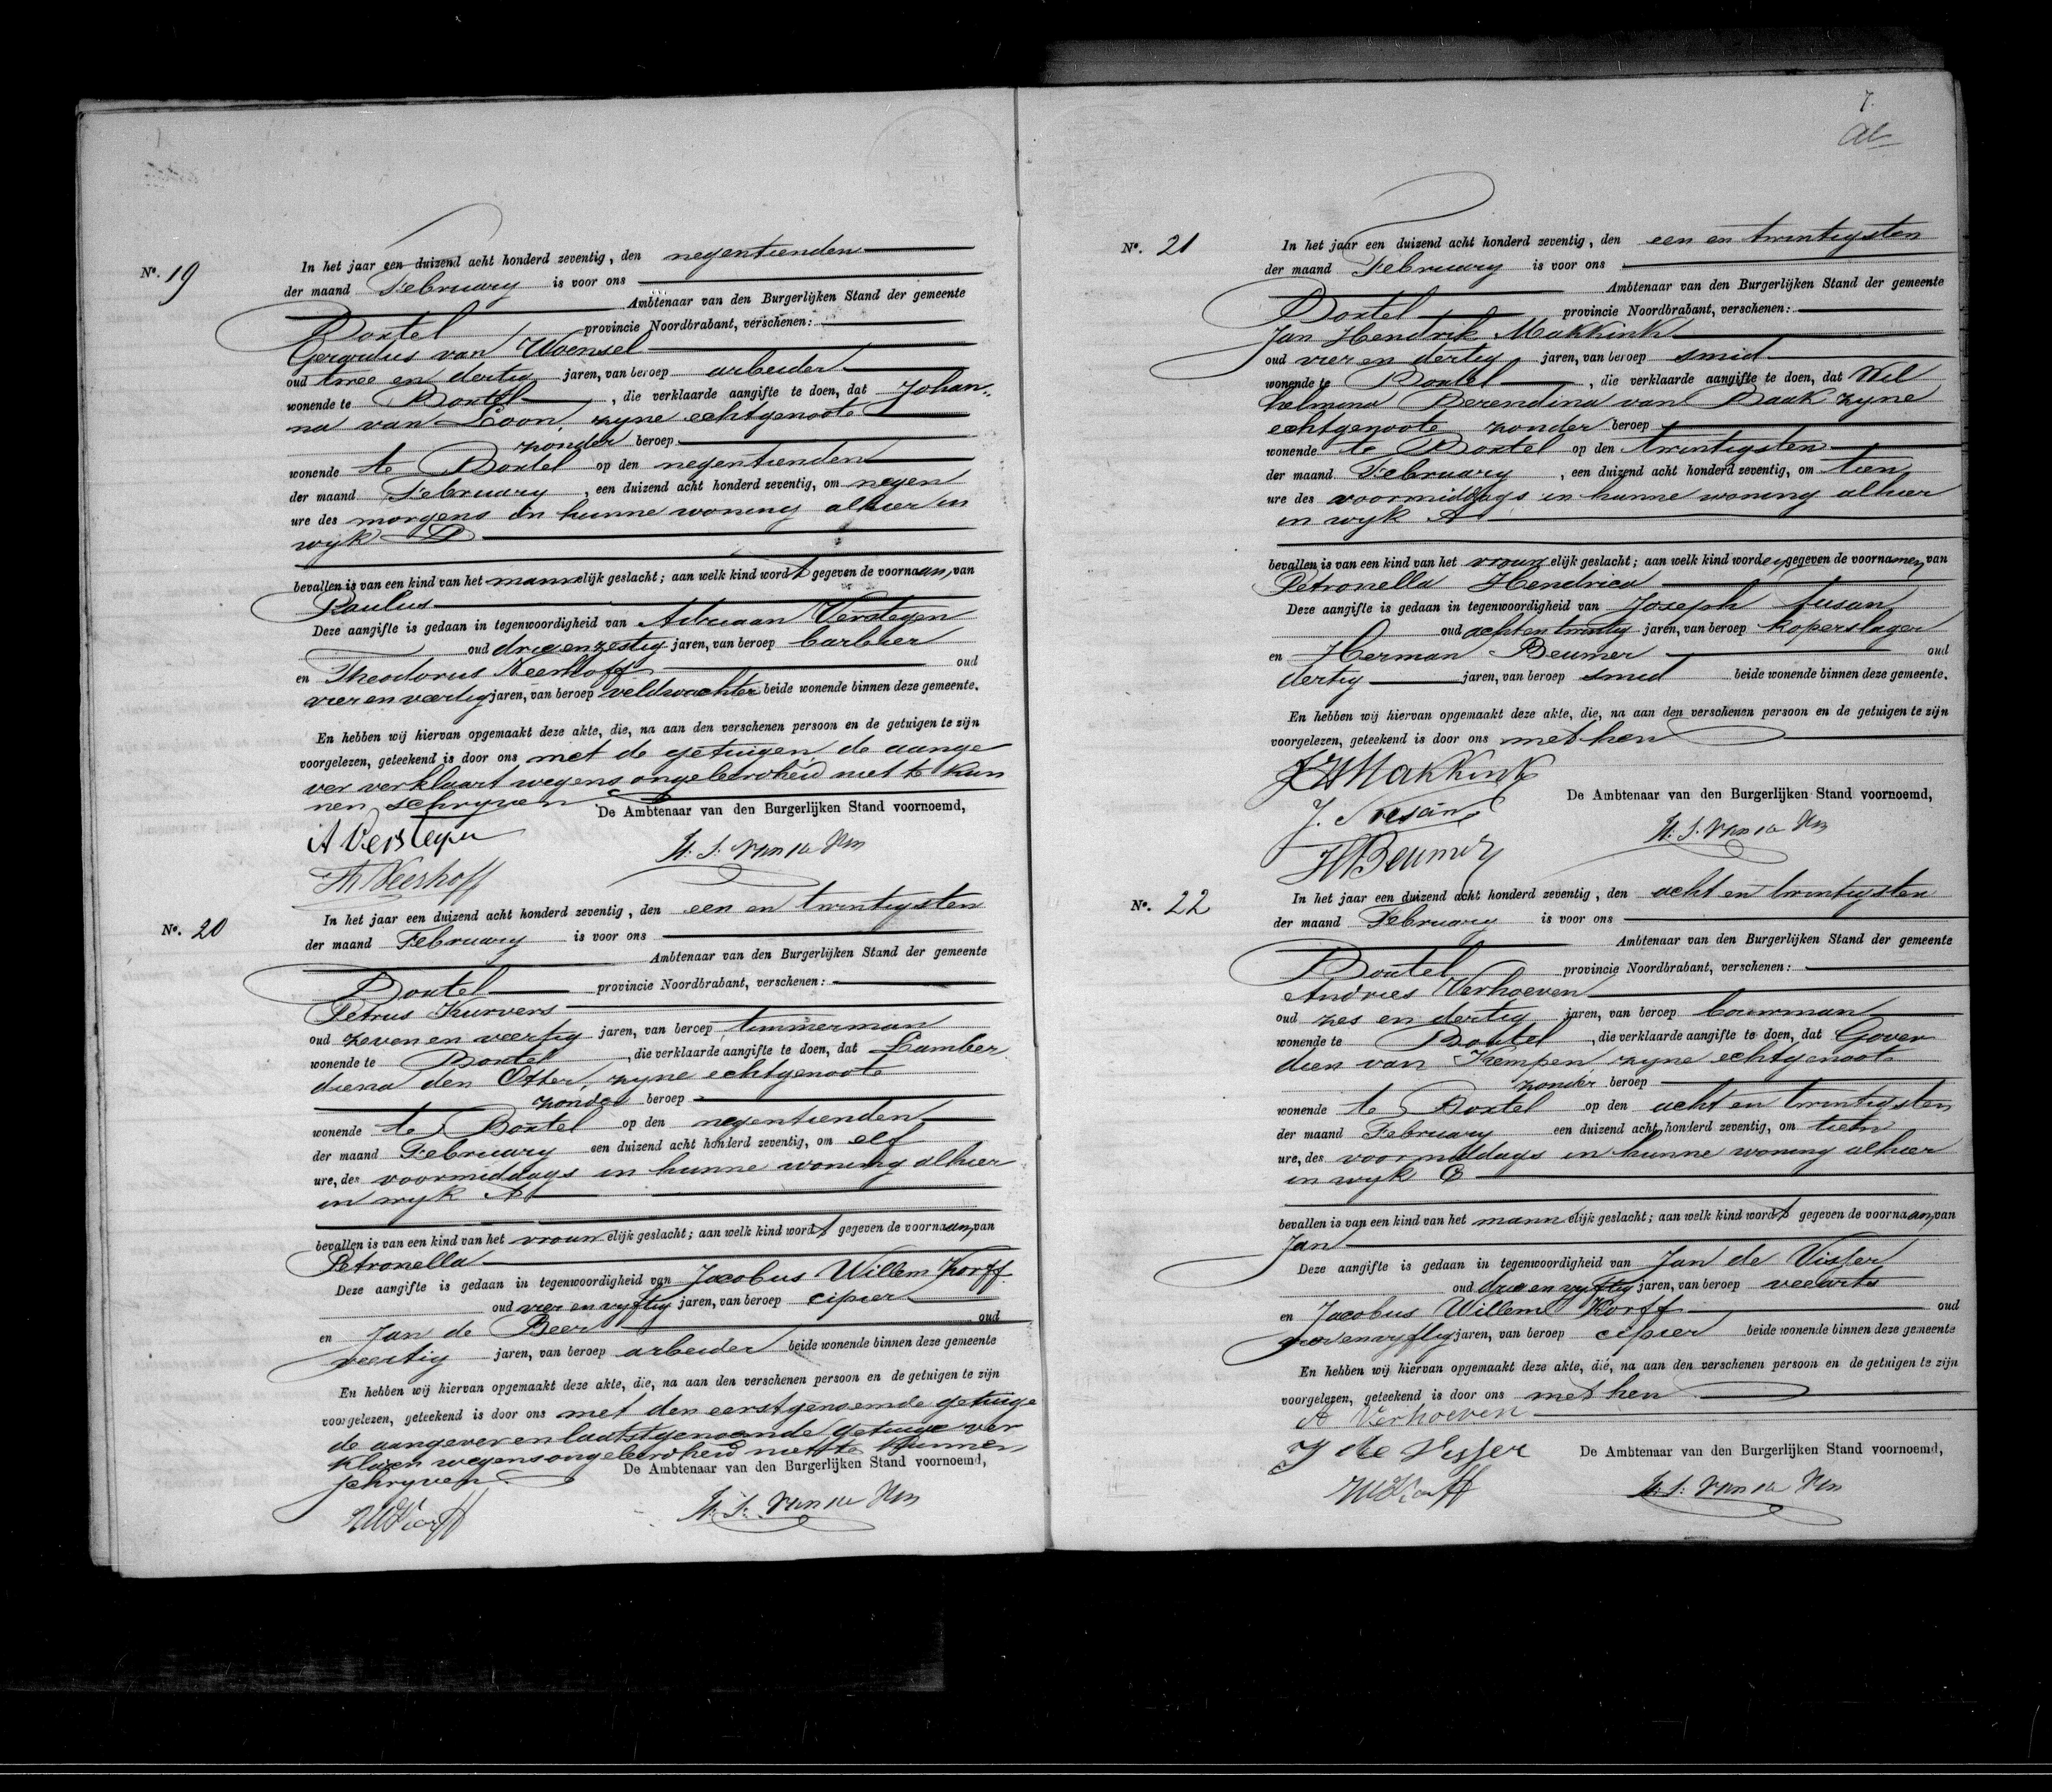 Nº. 19
In het jaar een duizend acht honderd zeventig, den negentienden
der maand February is voor ons
Ambtenaar van den Burgerlijken Stand der gemeente
Boxtel provincie Noordbrabant, verschenen:
Gerardus van Woensel
oud twee en dertig jaren, van beroep arbeider
wonende te Boxtel, die verklaarde aangifte te doen, dat Johan-
na van Loon, zyne echtgenoote
zonder beroep
wonende te Boxtel op den negentienden
der maand February, een duizend acht honderd zeventig, om negen
ure des morgens in hunne woning alhier in
wyk D
bevallen is van een kind van het mannelijk geslacht; aan welk kind wordt gegeven de voornaam, van
Paulus
Deze aangifte is gedaan in tegenwoordigheid van Adriaan Verstegen
oud drie en zestig jaren, van beroep barbier
en Theodorus Neerhoff oud
vier en veertig jaren, van beroep veldwachter beide wonende binnen deze gemeente.
En hebben wij hiervan opgemaakt deze akte, die, na aan den verschenen persoon en de getuigen te zijn
voorgelezen, geteekend is door ons met de getuigen, de aange
ver verklaart wegens ongeleerdheid niet te kun
nen schryven
De Ambtenaar van den Burgerlijken Stand voornoemd,
A Verstegen
Th Neerhoff
Nº. 20
In het jaar een duizend acht honderd zeventig, den een en twintigsten
der maand February is voor ons
Ambtenaar van den Burgerlijken Stand der gemeente
Boxtel provincie Noordbrabant, verschenen:
Petrus Kurvers
oud zeven en veertig jaren, van beroep timmerman
wonende te Boxtel, die verklaarde aangifte te doen, dat Lamber
diena den Otter, zyne echtgenoote
zonder beroep
wonende te Boxtel op den negentienden
der maand February een duizend acht honderd zeventig, om elf
ure, des voormiddags in hunne woning alhier
in wyk A
bevallen is van een kind van het vrouwelijk geslacht; aan welk kind wordt gegeven de voornaam, van
Petronella
Deze aangifte is gedaan in tegenwoordigheid van Jacobus Willem Korff
oud vier en vyftig jaren, van beroep cipier
en Jan de Beer oud
veertig jaren, van beroep arbeider beide wonende binnen deze gemeente
En hebben wij hiervan opgemaakt deze akte, die, na aan den verschenen persoon en de getuigen te zijn
voorgelezen, geteekend is door ons met den eerstgenoemde getuige
de aangever en laatstgenoemde getuige ver
klaren wegens ongeleerdheid niet te kunnen
schryven
De Ambtenaar van den Burgerlijken Stand voornoemd,
JWKorff
7.
Nº. 21
In het jaar een duizend acht honderd zeventig, den een en twintigsten
der maand February is voor ons
Ambtenaar van den Burgerlijken Stand der gemeente
Boxtel provincie Noordbrabant, verschenen:
Jan Hendrik Makkink
oud vier en dertig jaren, van beroep smid
wonende te Boxtel, die verklaarde aangifte te doen, dat Wil
helmina Berendina van Baak zyne
echtgenoote zonder beroep
wonende te Boxtel op den twintigsten
der maand February, een duizend acht honderd zeventig, om tien
ure des voormiddags in hunne woning alhier
in wyk A
bevallen is van een kind van het vrouwelijk geslacht; aan welk kind worden gegeven de voornamen, van
Petronella Hendrica
Deze aangifte is gedaan in tegenwoordigheid van Joseph Susan
oud acht en twintig jaren, van beroep koperslager
en Herman Beumer oud
dertig jaren, van beroep smid beide wonende binnen deze gemeente.
En hebben wij hiervan opgemaakt deze akte, die, na aan den verschenen persoon en de getuigen te zijn
voorgelezen, geteekend is door ons met hen
JHMakkink
De Ambtenaar van den Burgerlijken Stand voornoemd,
J. Susan
HBeumer
Nº. 22
In het jaar een duizend acht honderd zeventig, den acht en twintigsten
der maand February is voor ons
Ambtenaar van den Burgerlijken Stand der gemeente
Boxtel provincie Noordbrabant, verschenen:
Andries Verhoeven
oud zes en dertig jaren, van beroep bouwman
wonende te Boxtel, die verklaarde aangifte te doen, dat Gover
dien van Kempen, zyne echtgenoote
zonder beroep
wonende te Boxtel op den acht en twintigsten
der maand February een duizend acht honderd zeventig, om tien
ure, des voormiddags in hunne woning alhier
in wyk B
bevallen is van een kind van het mannelijk geslacht; aan welk kind wordt gegeven de voornaam, van
Jan
Deze aangifte is gedaan in tegenwoordigheid van Jan de Visser
oud drie en vyftig jaren, van beroep veearts
en Jacobus Willem Korff oud
vier en vyftig jaren, van beroep cipier beide wonende binnen deze gemeente
En hebben wij hiervan opgemaakt deze akte, die, na aan den verschenen persoon en de getuigen te zijn
voorgelezen, geteekend is door ons met hen
A Verhoeven
J de Visser
De Ambtenaar van den Burgerlijken Stand voornoemd,
JWKorff